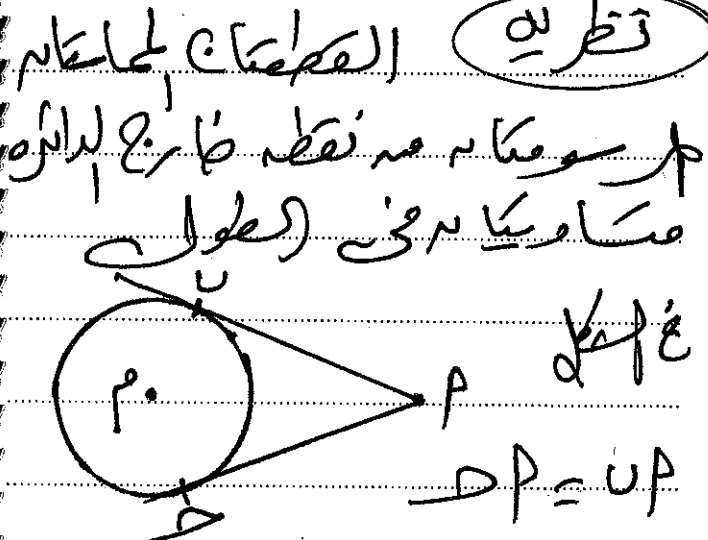 نظريه القطعتان المماستان
المرسومتان من نقطه خارج الدائره
متساويتان فى الطول
فى الشكل
ب
م
أ
أب = أحـ
حـ